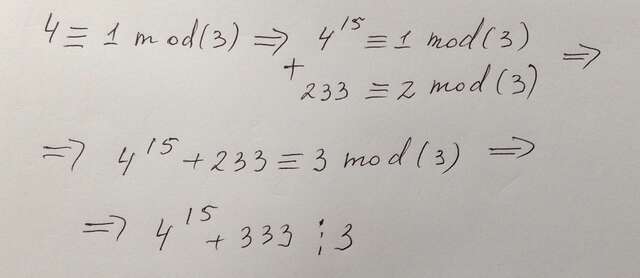 4 ≡ 1 mod(3) ⇒ 4¹⁵ ≡ 1 mod(3)
+ 233 ≡ 2 mod(3) ⇒
⇒ 4¹⁵ + 233 ≡ 3 mod(3) ⇒
⇒ 4¹⁵ + 333 ⋮ 3